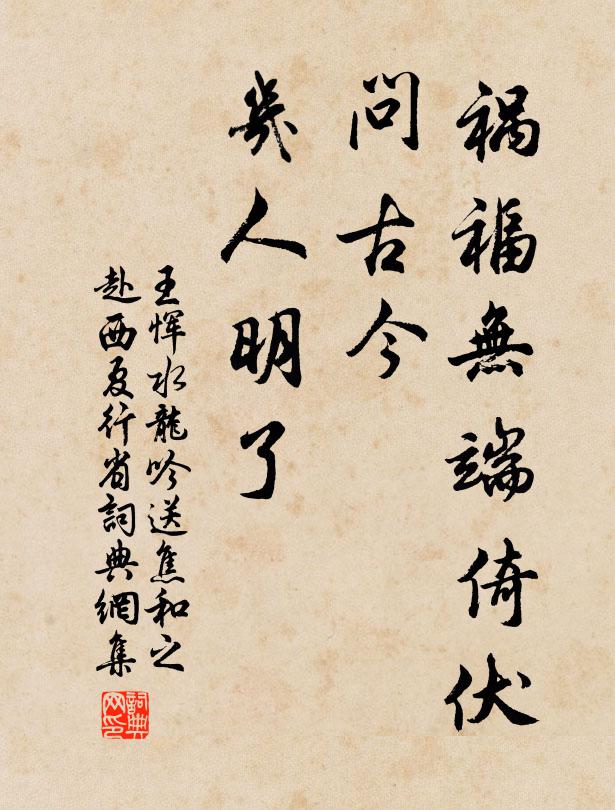 祸福無端倚伏
問古今
幾人明了
王惲水龍吟送焦和之
赴西夏行省詞典網集
詞典网印